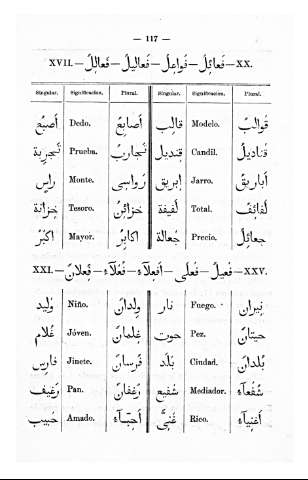 — 117 —
XVII.—فَعَائِلُ—فَوَاعِلُ—فَعَالِيلُ—فَعَالِلُ—XX.
Singular. Significacion. Plural. Singular. Significacion. Plural.
أَصْبُع Dedo. أَصَابِعُ قَالِب Modelo. قَوَالِبُ
تَجْرِبَة Prueba. تَجَارِبُ قِنْدِيل Candil. قَنَادِيلُ
رَاسٍ Monte. رَوَاسِي إِبْرِيق Jarro. أَبَارِيقُ
خِزَانَة Tesoro. خَزَائِنُ لَفِيفَة Total. لَفَائِفُ
أَكْبَرُ Mayor. أَكَابِرُ جُعَالَة Precio. جَعَائِلُ
XXI.—فَعِيلٌ—فَعْلَى—أَفْعِلَآءُ—فُعَلَآءُ—فِعْلَانٌ—XXV.
وَلِيد Niño. وِلْدَانٌ نَار Fuego. نِيرَانٌ
غُلَام Jóven. غِلْمَانٌ حُوت Pez. حِيتَانٌ
فَارِس Jinete. فُرْسَانٌ بَلَد Ciudad. بُلْدَانٌ
رَغِيف Pan. رُغْفَانٌ شَفِيع Mediador. شُفَعَآءُ
حَبِيب Amado. أَحِبَّآءُ غَنِيّ Rico. أَغْنِيَآءُ